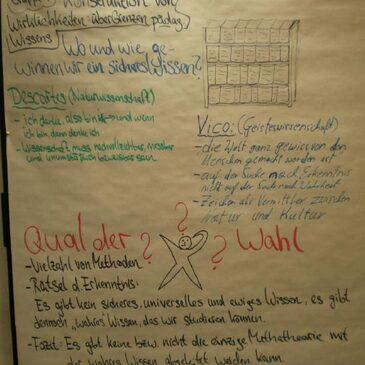 Konstruktion von
Wirklichkeiten - über Grenzen pädag.
Wissens
Wo und wie ge-
winnen wir ein sicheres Wissen?
Descartes (Naturwissenschaft)
- ich denke, also bin ich und wenn
ich bin dann denke ich
- Wissenschaft muss nachvollziehbar, messbar
und unumstößlich beweisbar sein
Vico: (Geisteswissenschaft)
- die Welt ganz gewiss von den
Menschen gemacht worden ist
- auf der Suche nach Erkenntnis
nicht auf der Suche nach Wahrheit
- Zeichen als Vermittler zwischen
Natur und Kultur
Qual der ? ? ? Wahl
- Vielzahl von Methoden
- Rätsel d. Erkenntnis:
Es gibt kein sicheres, universelles und ewiges Wissen, es gibt
dennoch „wahres" Wissen, das wir studieren können.
- Fazit: Es gibt keine bzw. nicht die einzige Methatheorie mit
der wahres Wissen abgeleitet werden kann.